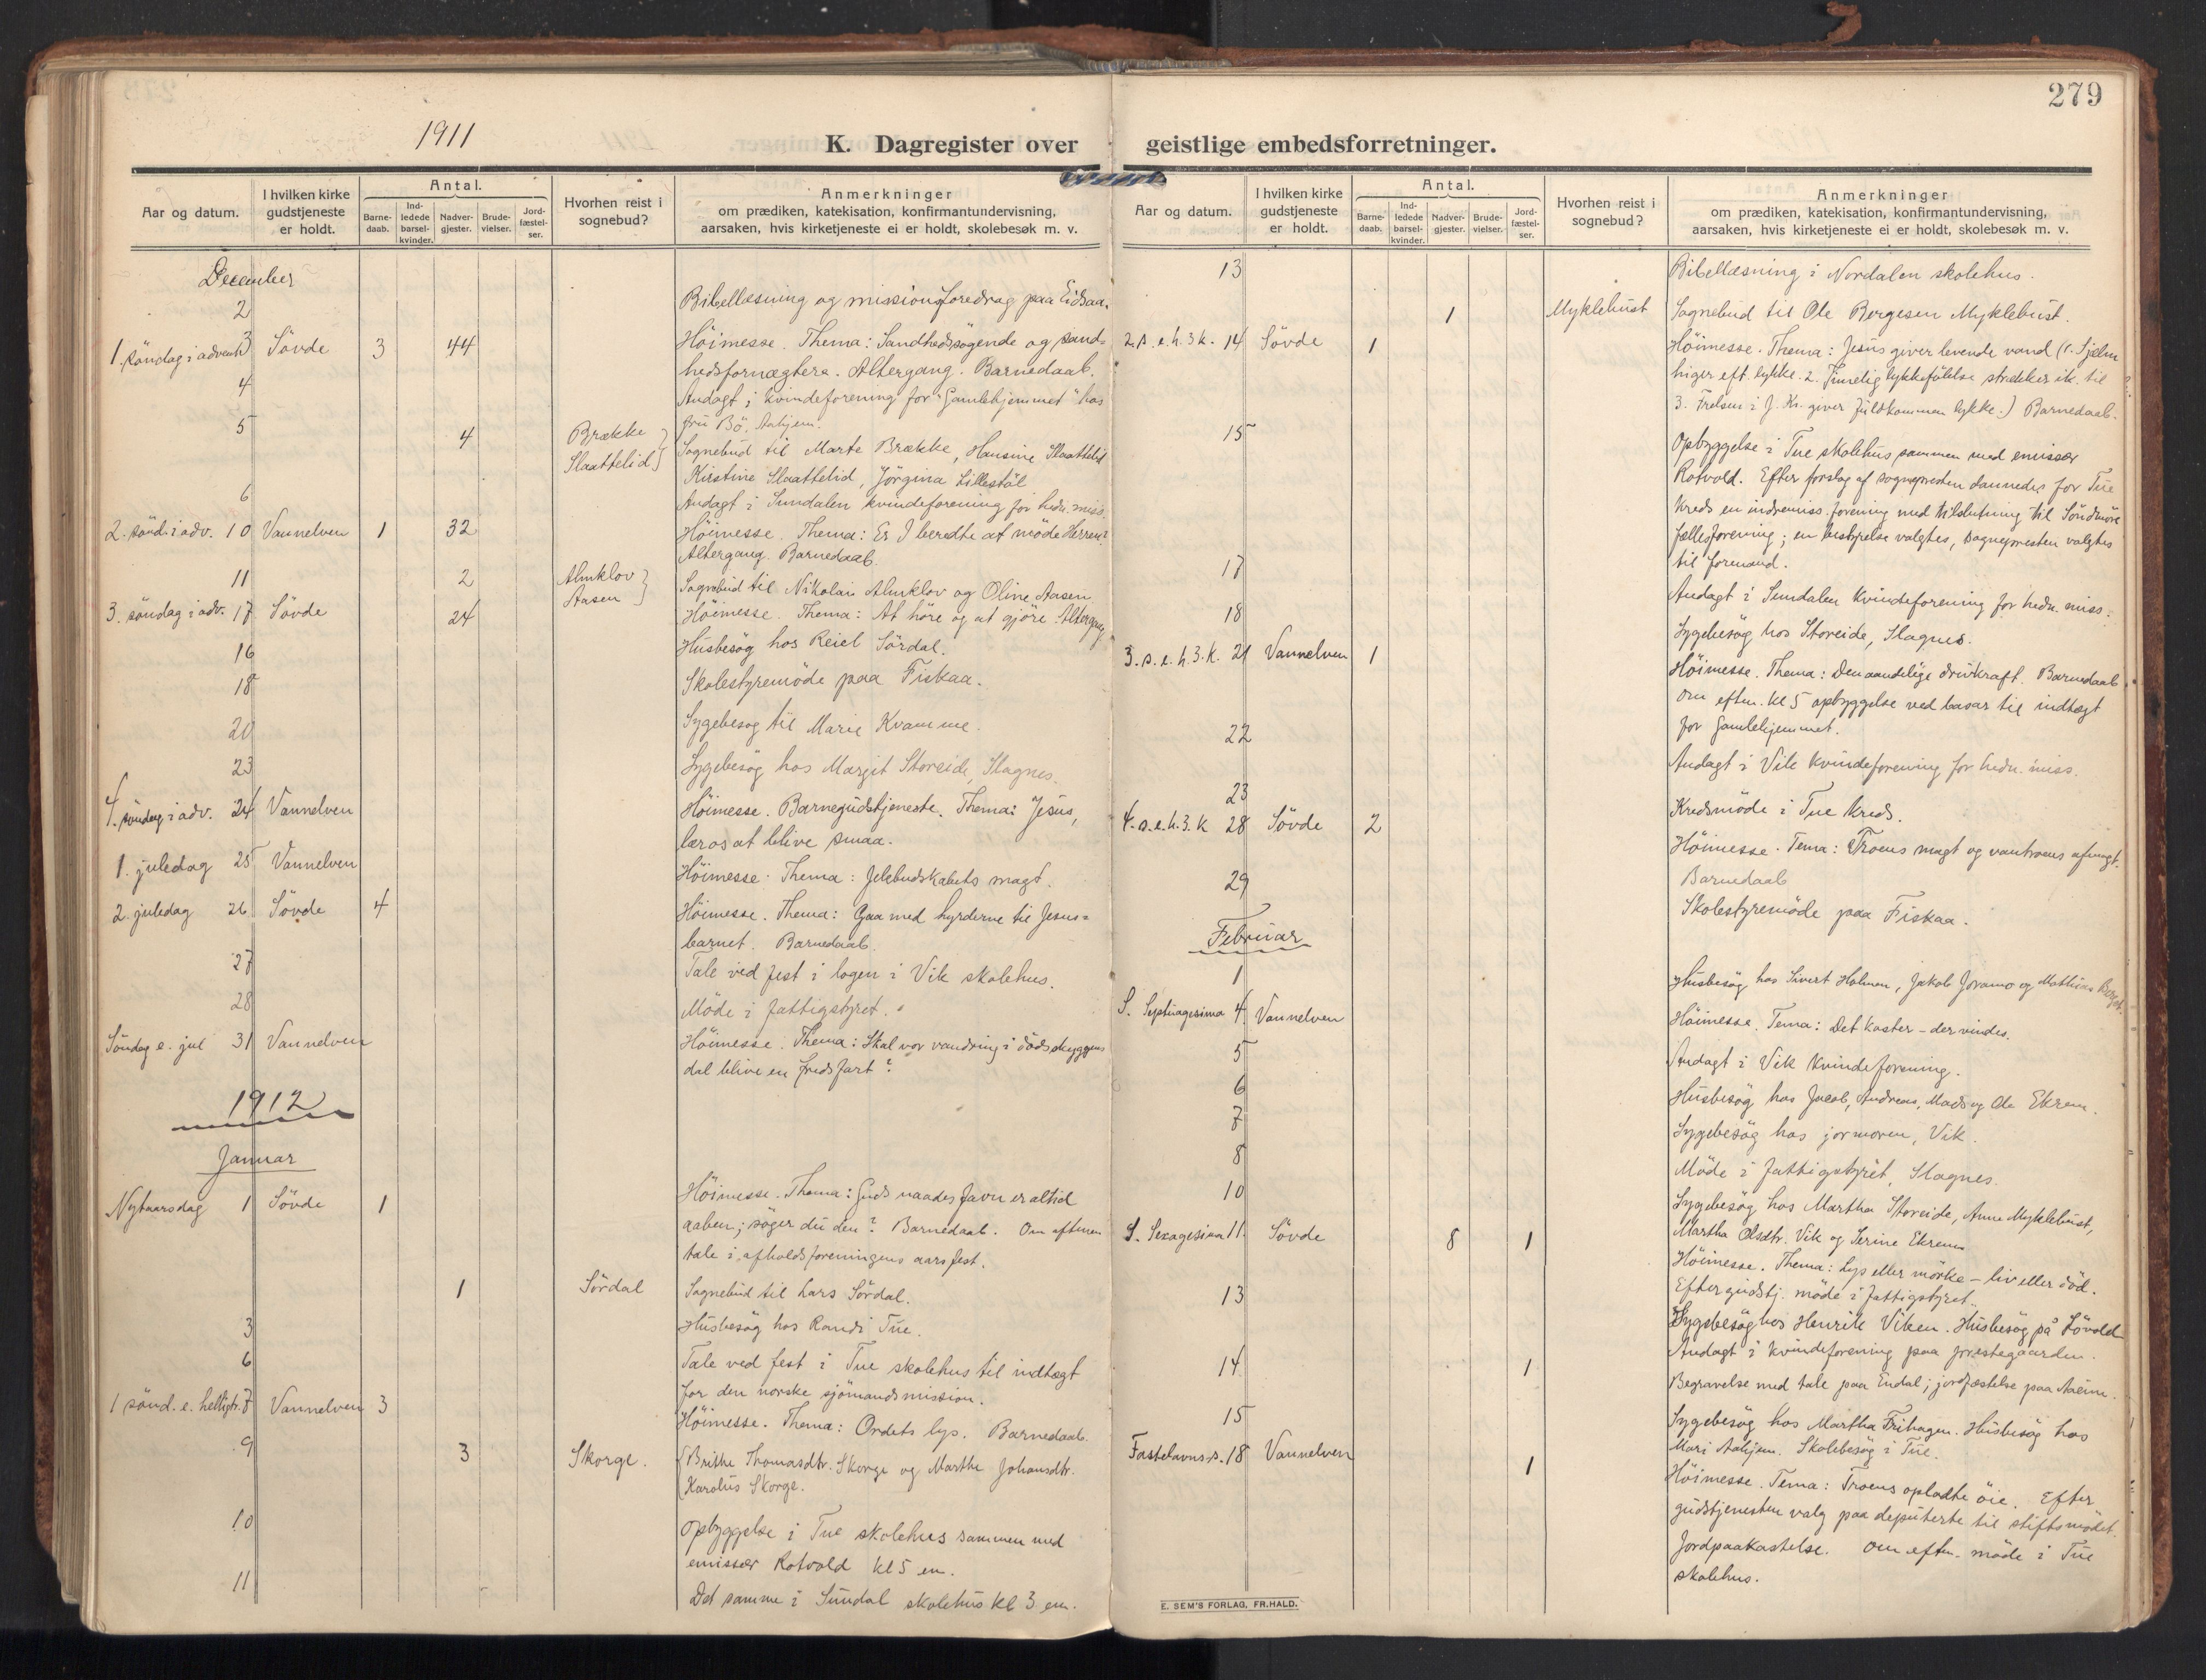 279
1911
K. Dagregister over geistlige embedsforretninger.
Aar og datum.
I hvilken kirke gudstjeneste er holdt.
Antal.
Barne-daab.
Ind-ledede barsel-kvinder.
Nadver-gjester.
Brude-vielser.
Jord-fæstel-ser.
Hvorhen reist i sognebud?
Anmerkninger
om prædiken, katekisation, konfirmantundervisning,
aarsaken, hvis kirketjeneste ei er holdt, skolebesøk m. v.
December
2 Bibellæsning og missionsforedrag paa Eidsaa.
1. söndag i advent 3 Sövde 3 44 Höimesse. Thema: Sandhedssögende og sand=
hedsfornægtere. Altergang. Barnedaab.
4 Andagt i kvindeforening for "Gamlehjemmet" hos
fru Bö, Aahjem.
5 4 Brække Slaattelid } Sognebud til Marte Brække, Hansine Slaattelid
Kirstine Slaattelid, Jörgina Lillestöl
6 Andagt i Sundalen kvindeforening for hedn. miss.
2. sönd. i adv. 10 Vannelven 1 32 Höimesse. Thema: Er I beredte at möde Herren?
Altergang. Barnedaab.
11 2 Almklov Aasen } Sognebud til Nikolai Almklov og Oline Aasen
3. söndag i adv. 17 Sövde 24 Höimesse. Thema: At höre og at gjöre. Altergang
16 Husbesög hos Reiel Sördal.
18 Skolestyremöde paa Fiskaa.
20 Sygebesög til Marie Kvamme.
23 Sygebesög hos Margit Storeide, Slagnes.
4. söndag i adv. 24 Vannelven Höimesse. Barnegudstjeneste. Thema: Jesus,
lær os at blive smaa.
1. juledag 25 Vannelven Höimesse. Thema: Julebudskabets magt.
2. juledag 26 Sövde 4 Höimesse. Thema: Gaa med hyrderne til Jesus=
barnet. Barnedaab.
27 Tale ved fest i logen i Vik skolehus.
28 Möde i fattigstyret.
Söndag e. jul 31 Vannelven Höimesse. Thema: Skal vor vandring i dödsskyggens
dal blive en fredsfart?
1912
Januar
Nytaarsdag 1 Sövde 1 Höimesse. Thema: Guds naades favn er altid
aaben; söger du den? Barnedaab. Om aftenen
tale i afholdsforeningens aarsfest.
1 Sördal Sognebud til Lars Sördal.
3 Husbesög hos Randi Tue.
6 Tale ved fest i Tue skolehus til indtægt
for den norske sjömandsmission.
1 sönd. e. helligtr. 7 Vannelven 3 Höimesse. Thema: Ordets lys. Barnedaab.
9 3 Skorge. Brithe Thomasdtr. Skorge og Marthe Johansdtr.
Karolus Skorge.
10 Opbyggelse i Tue skolehus sammen med
emissær Rotvold kl 5 em.
11 Det samme i Sundal skolehus kl 3 em.
Aar og datum.
I hvilken kirke gudstjeneste er holdt.
Antal.
Barne-daab.
Ind-ledede barsel-kvinder.
Nadver-gjester.
Brude-vielser.
Jord-fæstel-ser.
Hvorhen reist i sognebud?
Anmerkninger
om prædiken, katekisation, konfirmantundervisning,
aarsaken, hvis kirketjeneste ei er holdt, skolebesøk m. v.
13 Bibellæsning i Nordalen skolehus.
1 Myklebust Sognebud til Ole Borgesen Myklebust.
2. s. e. h. 3 k. 14 Sövde 1 Höimesse. Thema: Jesus giver levende vand (1. Sjælen
higer eft. lykke. 2. Timelig lykkefölelse strækker ik. til
3. Frelsen i J. Kr. giver fuldkommen lykke.) Barnedaab.
15 Opbyggelse i Tue skolehus sammen med emissær
Rotvold. Efter forslag af sognepresten dannedes for Tue
kreds en indremiss. forening med tilslutning til Söndmöre
fællesforening; en bestyrelse valgtes, sognepresten valgtes
til formand.
17 Andagt i Sundalen kvindeforening for hedn. miss.
18 Sygebesög hos Storeide, Slagnes.
3. s. e. h. 3. k. 21 Vannelven 1 Höimesse. Thema: Den aandelige drivkraft. Barnedaab
Om eftm. kl 5 opbyggelse ved basar til indtægt
for Gamlehjemmet.
22 Andagt i Vik kvindeforening for hedn. miss.
23 Kredsmöde i Tue kreds.
4. s. e. h. 3. k 28 Sövde 2 Höimesse. Tema: Troens magt og vantroens afmagt.
Barnedaab
29 Skolestyremöde paa Fiskaa.
Februar
1 Husbesög hos Sivert Holmen, Jakob Joramo og Mathias
S. Septuagesima 4. Vannelven Höimesse. Tema: Det koster - der vindes.
5 Andagt i Vik kvindeforening.
6 Husbesög hos Jacob, Andreas, Mads og Ole Ekrem.
7 Sygebesög hos jormoren, Vik.
8 Möde i fattigstyret, Slagnes.
10 Sygebesög hos Martha Storeide, Anne Myklebust,
Martha Olsdtr. Vik og Serine Ekrem
S. Sexagesima 11. Sövde 8 1 Höimesse. Thema: Lys eller mörke - liv eller död.
Efter gudstj. möde i fattigstyret.
13 Sygebesög hos Henrik Viken. Husbesög på Lövold
Andagt i kvindeforening paa prestegaarden.
14 1 Begravelse med tale paa Endal; jordfæstelse paa Aaeim.
15 Sygebesög hos Martha Frihagen. Husbesög hos
Mari Aahjem. Skolebesög i Tue.
Fastelavns s. 18 Vannelven 1 Höimesse. Tema: Troens opladte öie. Efter
gudstjenesten valg paa deputerte til stiftsmödet.
Jordpaakastelse. Om eftm. möde i Tue
skolehus.
E. SEM'S FORLAG, FR.HALD.